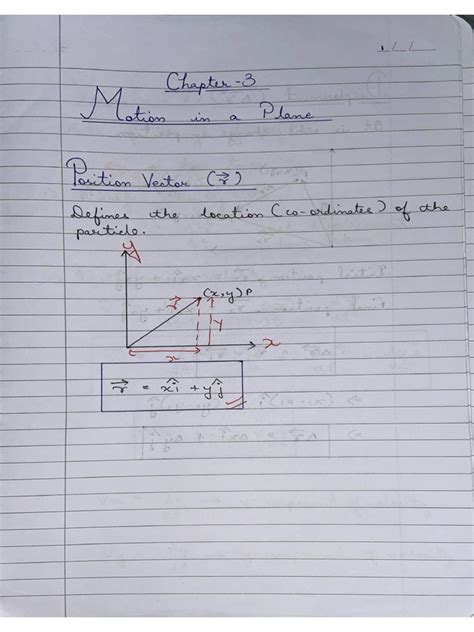 Chapter-3
Motion in a Plane
Position Vector (r⃗)
Defines the location (co-ordinates) of the
particle.
y
(x, y) P
r⃗
y
x
x
r⃗ = xî + yĵ